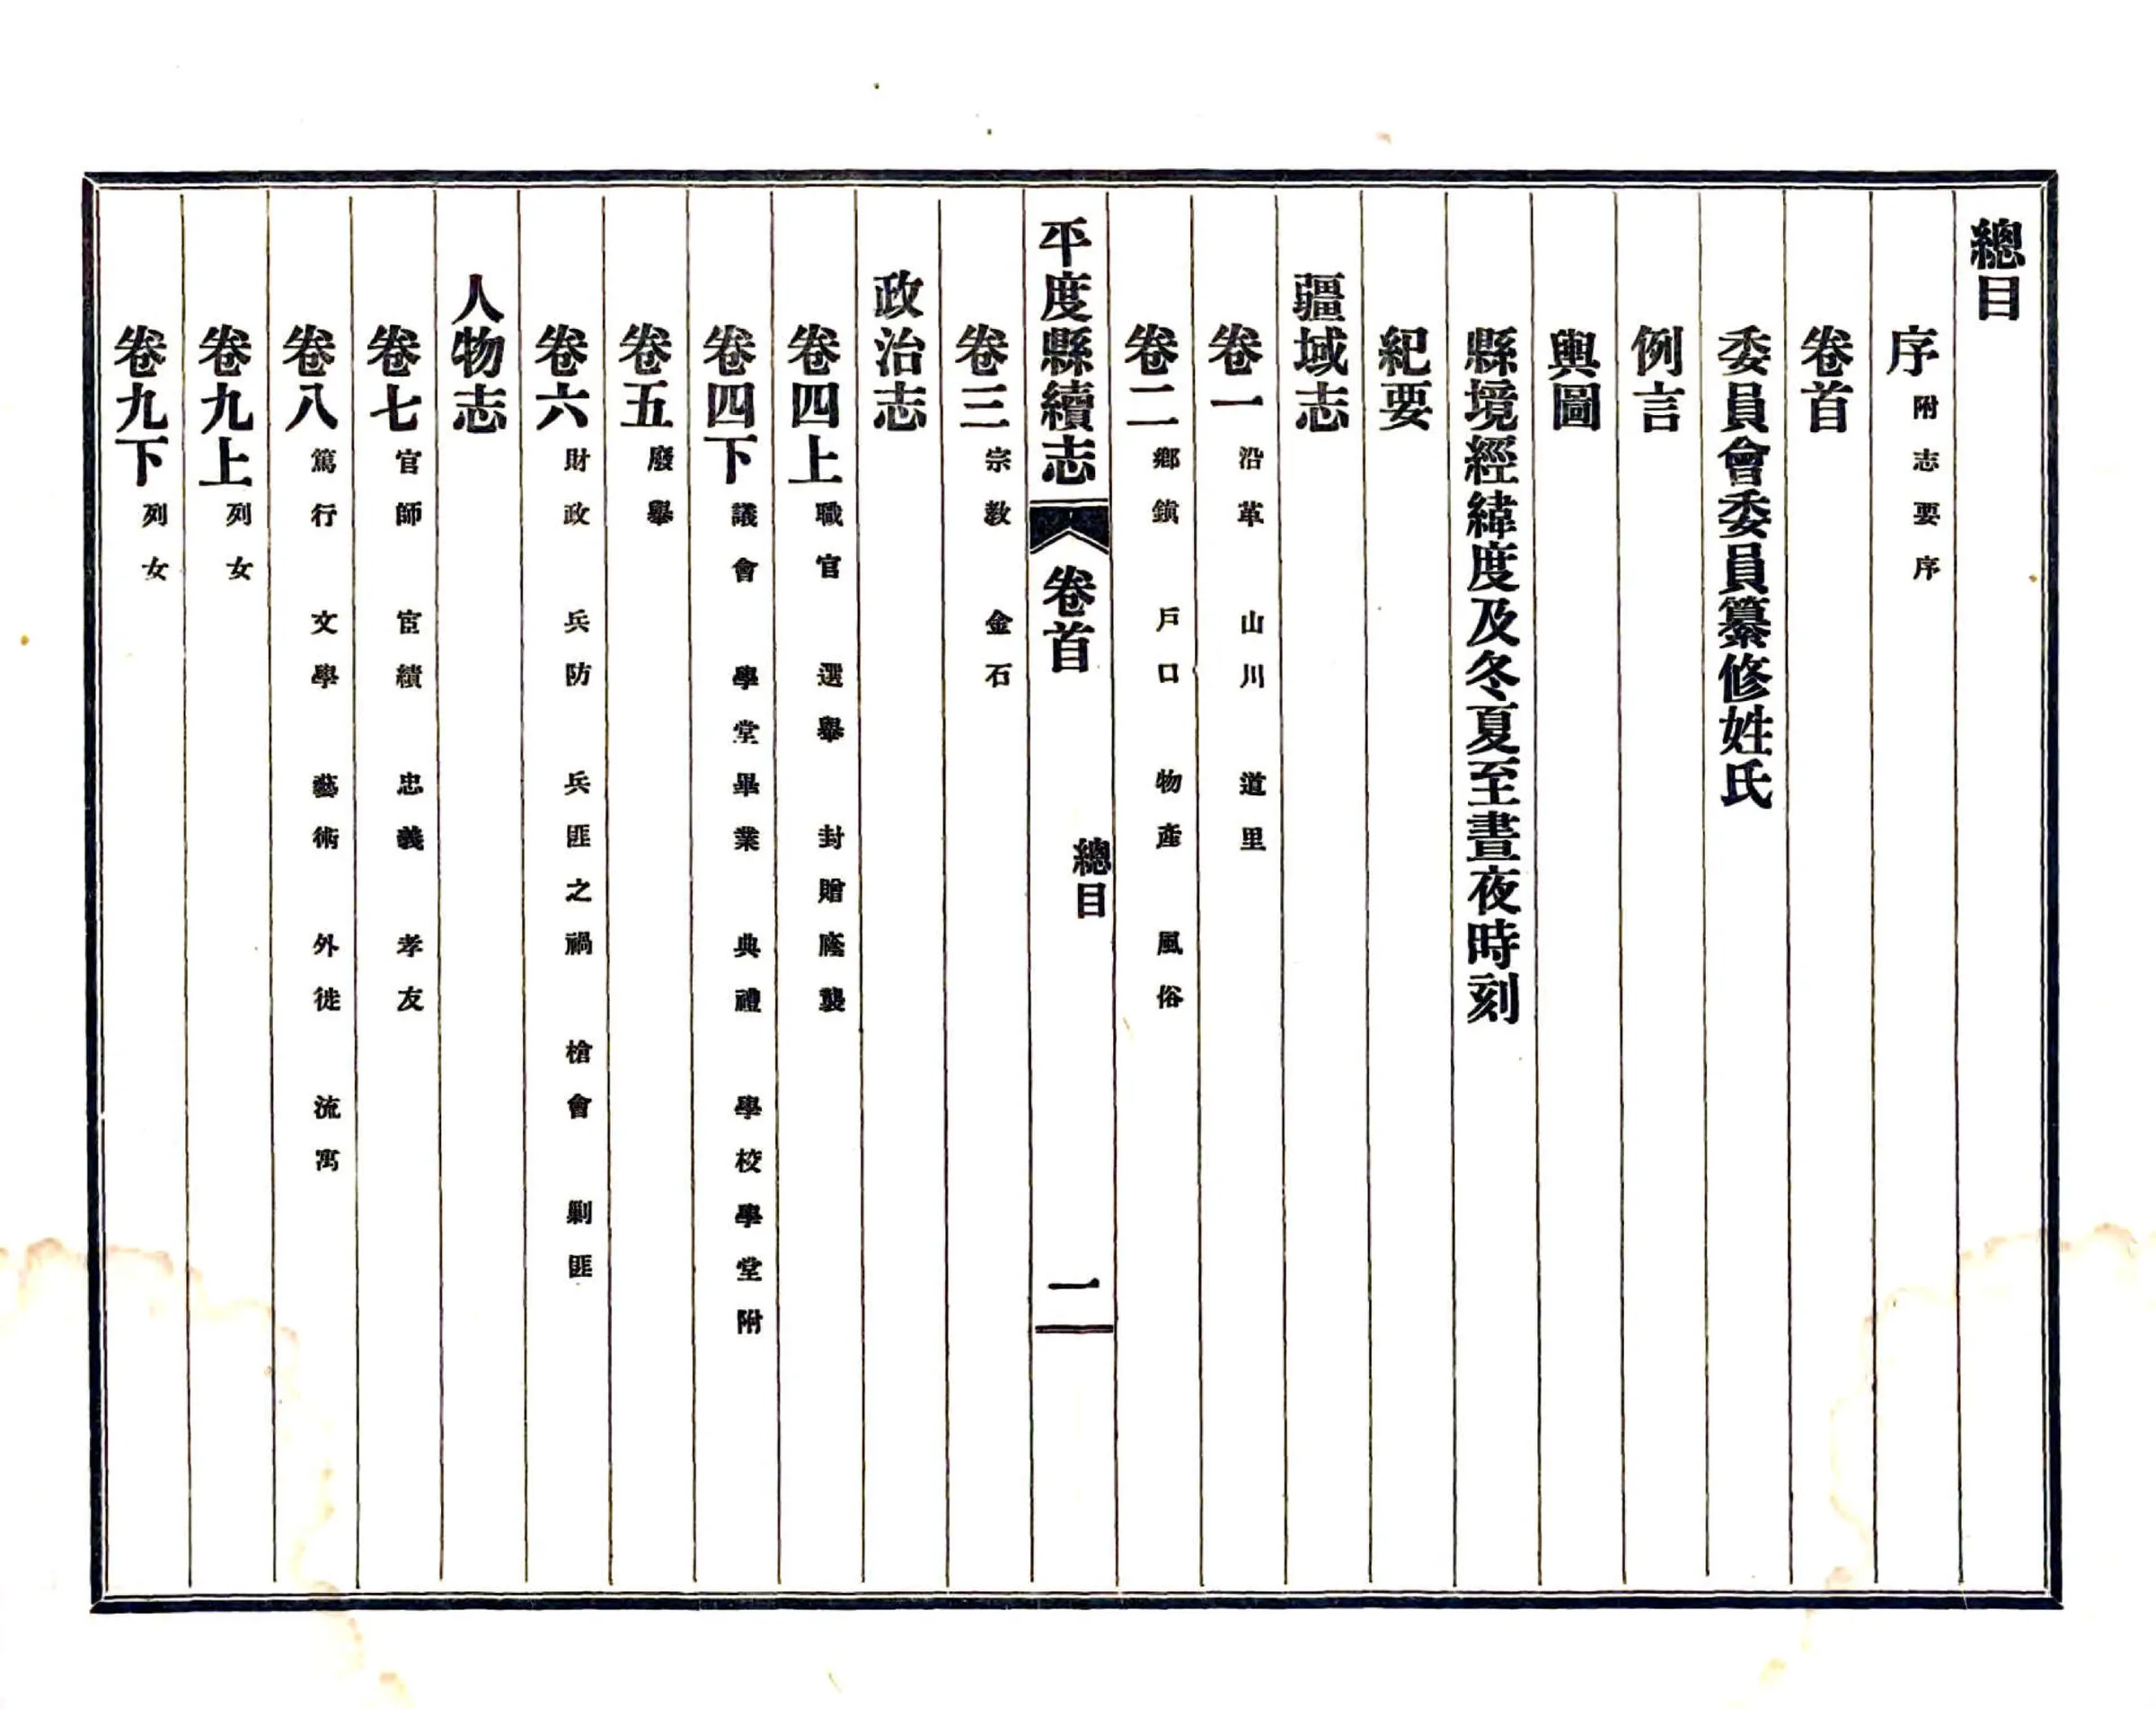 總目
序 附志要序
卷首
委員會委員纂修姓氏
例言
輿圖
縣境經緯度及冬夏至晝夜時刻
紀要
疆域志
卷一 沿革 山川 道里
卷二 鄉鎭 戶口 物產 風俗
平度縣續志 卷首 總目 一
卷三 宗教 金石
政治志
卷四上 職官 選舉 封贈廕襲
卷四下 議會 學堂畢業 典禮 學校學堂附
卷五 廢舉
卷六 財政 兵防 兵匪之禍 槍會 剿匪
人物志
卷七 官師 宦績 忠義 孝友
卷八 篤行 文學 藝術 外徙 流寓
卷九上 列女
卷九下 列女